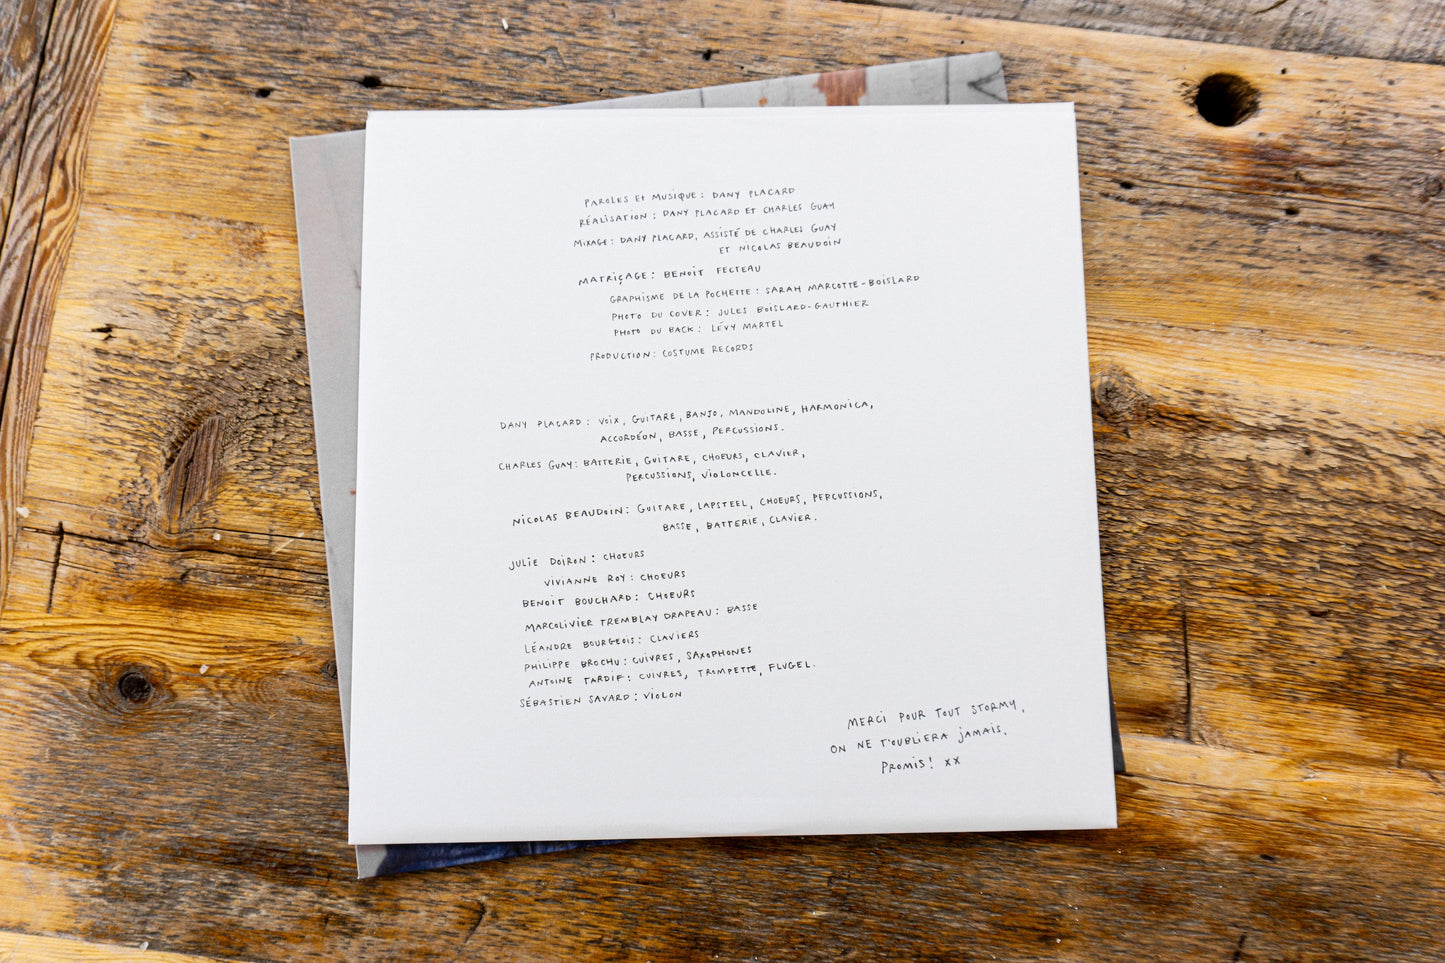 PAROLES ET MUSIQUE : DANY PLACARD
RÉALISATION : DANY PLACARD ET CHARLES GUAY
MIXAGE : DANY PLACARD, ASSISTÉ DE CHARLES GUAY
ET NICOLAS BEAUDOIN
MATRIÇAGE : BENOIT FECTEAU
GRAPHISME DE LA POCHETTE : SARAH MARCOTTE-BOISLARD
PHOTO DU COVER : JULES BOISLARD-GAUTHIER
PHOTO DU BACK : LÉVY MARTEL
PRODUCTION : COSTUME RECORDS
DANY PLACARD : VOIX, GUITARE, BANJO, MANDOLINE, HARMONICA,
ACCORDÉON, BASSE, PERCUSSIONS.
CHARLES GUAY : BATTERIE, GUITARE, CHOEURS, CLAVIER,
PERCUSSIONS, VIOLONCELLE.
NICOLAS BEAUDOIN : GUITARE, LAPSTEEL, CHOEURS, PERCUSSIONS,
BASSE, BATTERIE, CLAVIER.
JULIE DOIRON : CHOEURS
VIVIANNE ROY : CHOEURS
BENOIT BOUCHARD : CHOEURS
MARCOLIVIER TREMBLAY DRAPEAU : BASSE
LÉANDRE BOURGEOIS : CLAVIERS
PHILIPPE BROCHU : CUIVRES, SAXOPHONES
ANTOINE TARDIF : CUIVRES, TROMPETTE, FLUGEL.
SÉBASTIEN SAVARD : VIOLON
MERCI POUR TOUT STORMY,
ON NE T'OUBLIERA JAMAIS,
PROMIS! XX